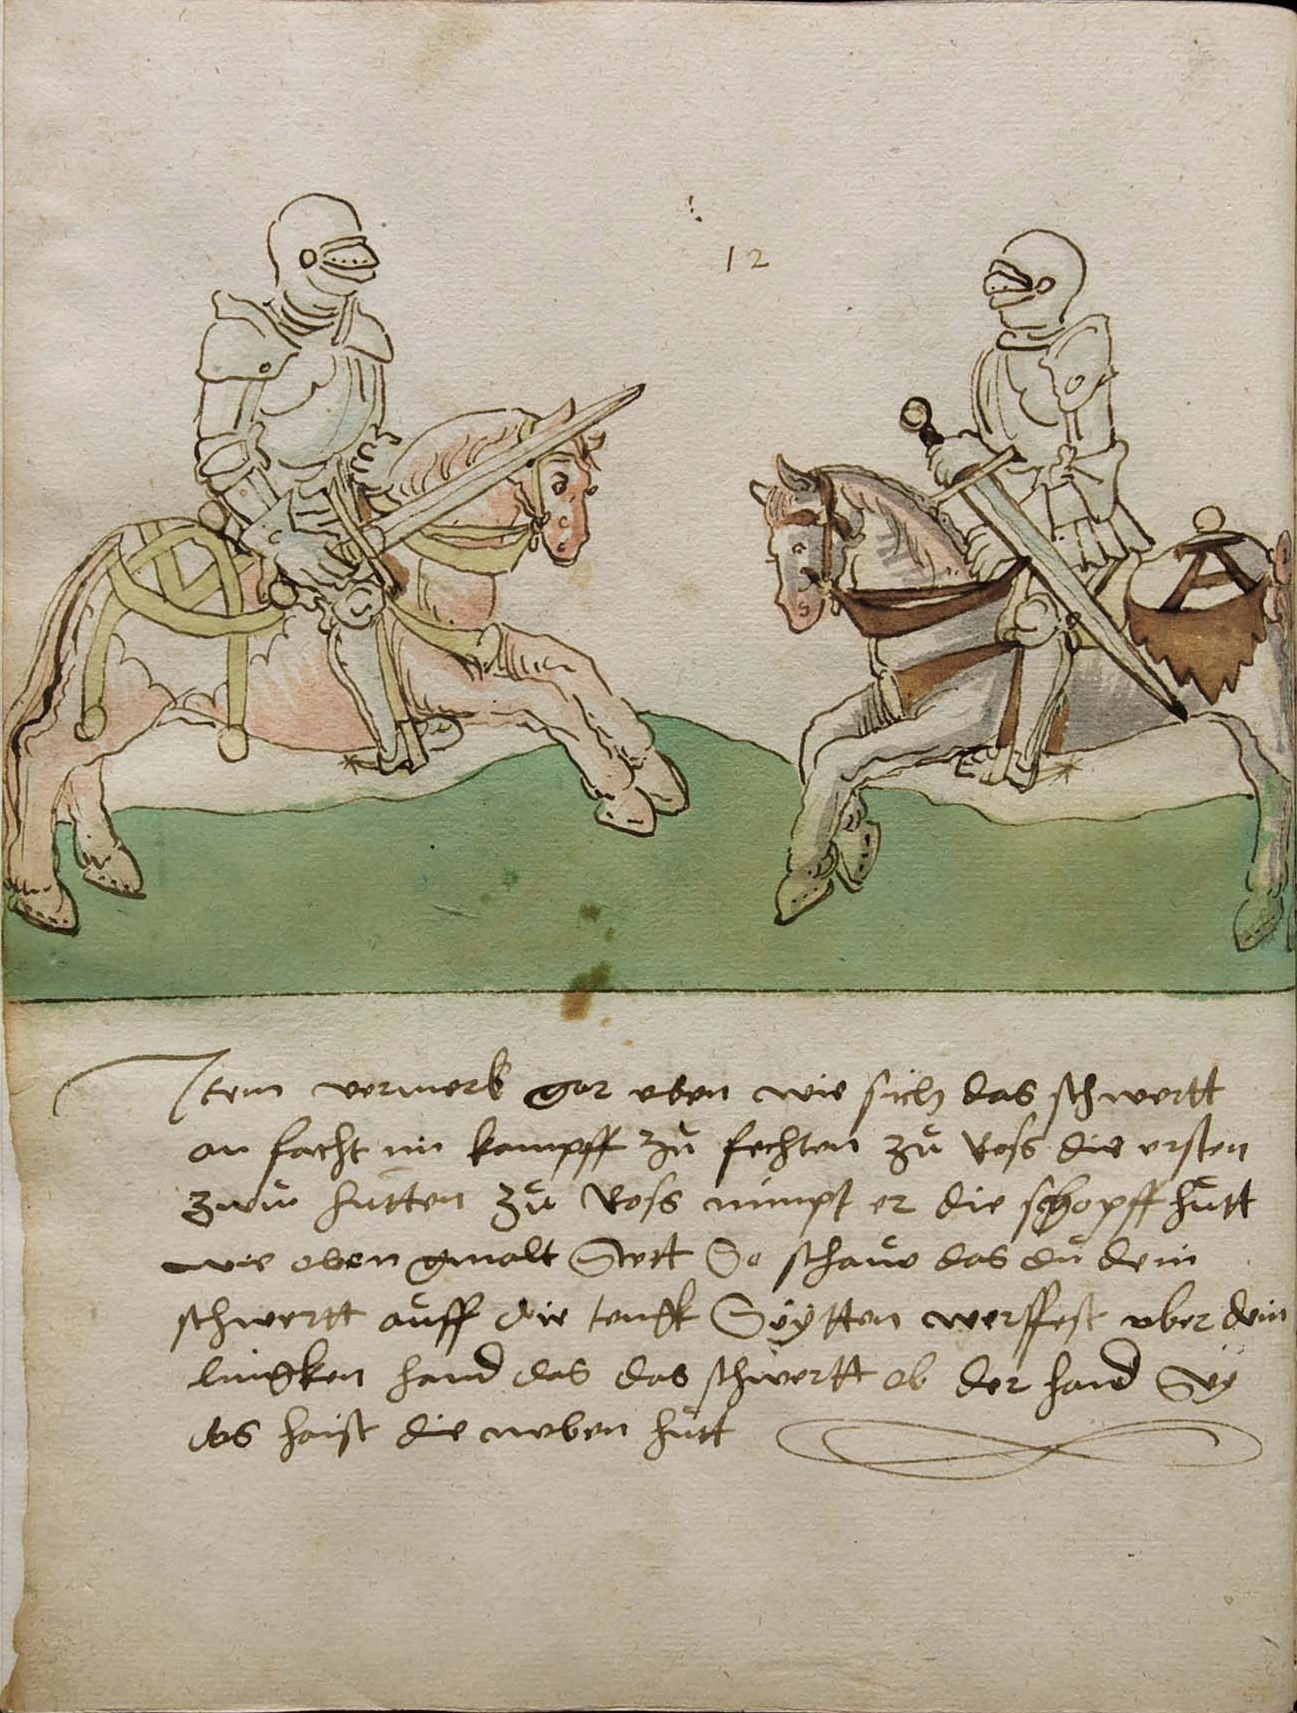 12
Item vermerk gar eben wie sich das schwertt
an facht im kampff zu fechten zu Ross die ersten
zwu hutten zu Ross nimpt er die schopff hutt
wie oben gmalt Stett So schauw das du dein
schwertt auff die tengk Seytten werffest uber dein
lingken hand das das schwertt ob der hand Sey
das haist die neben hutt